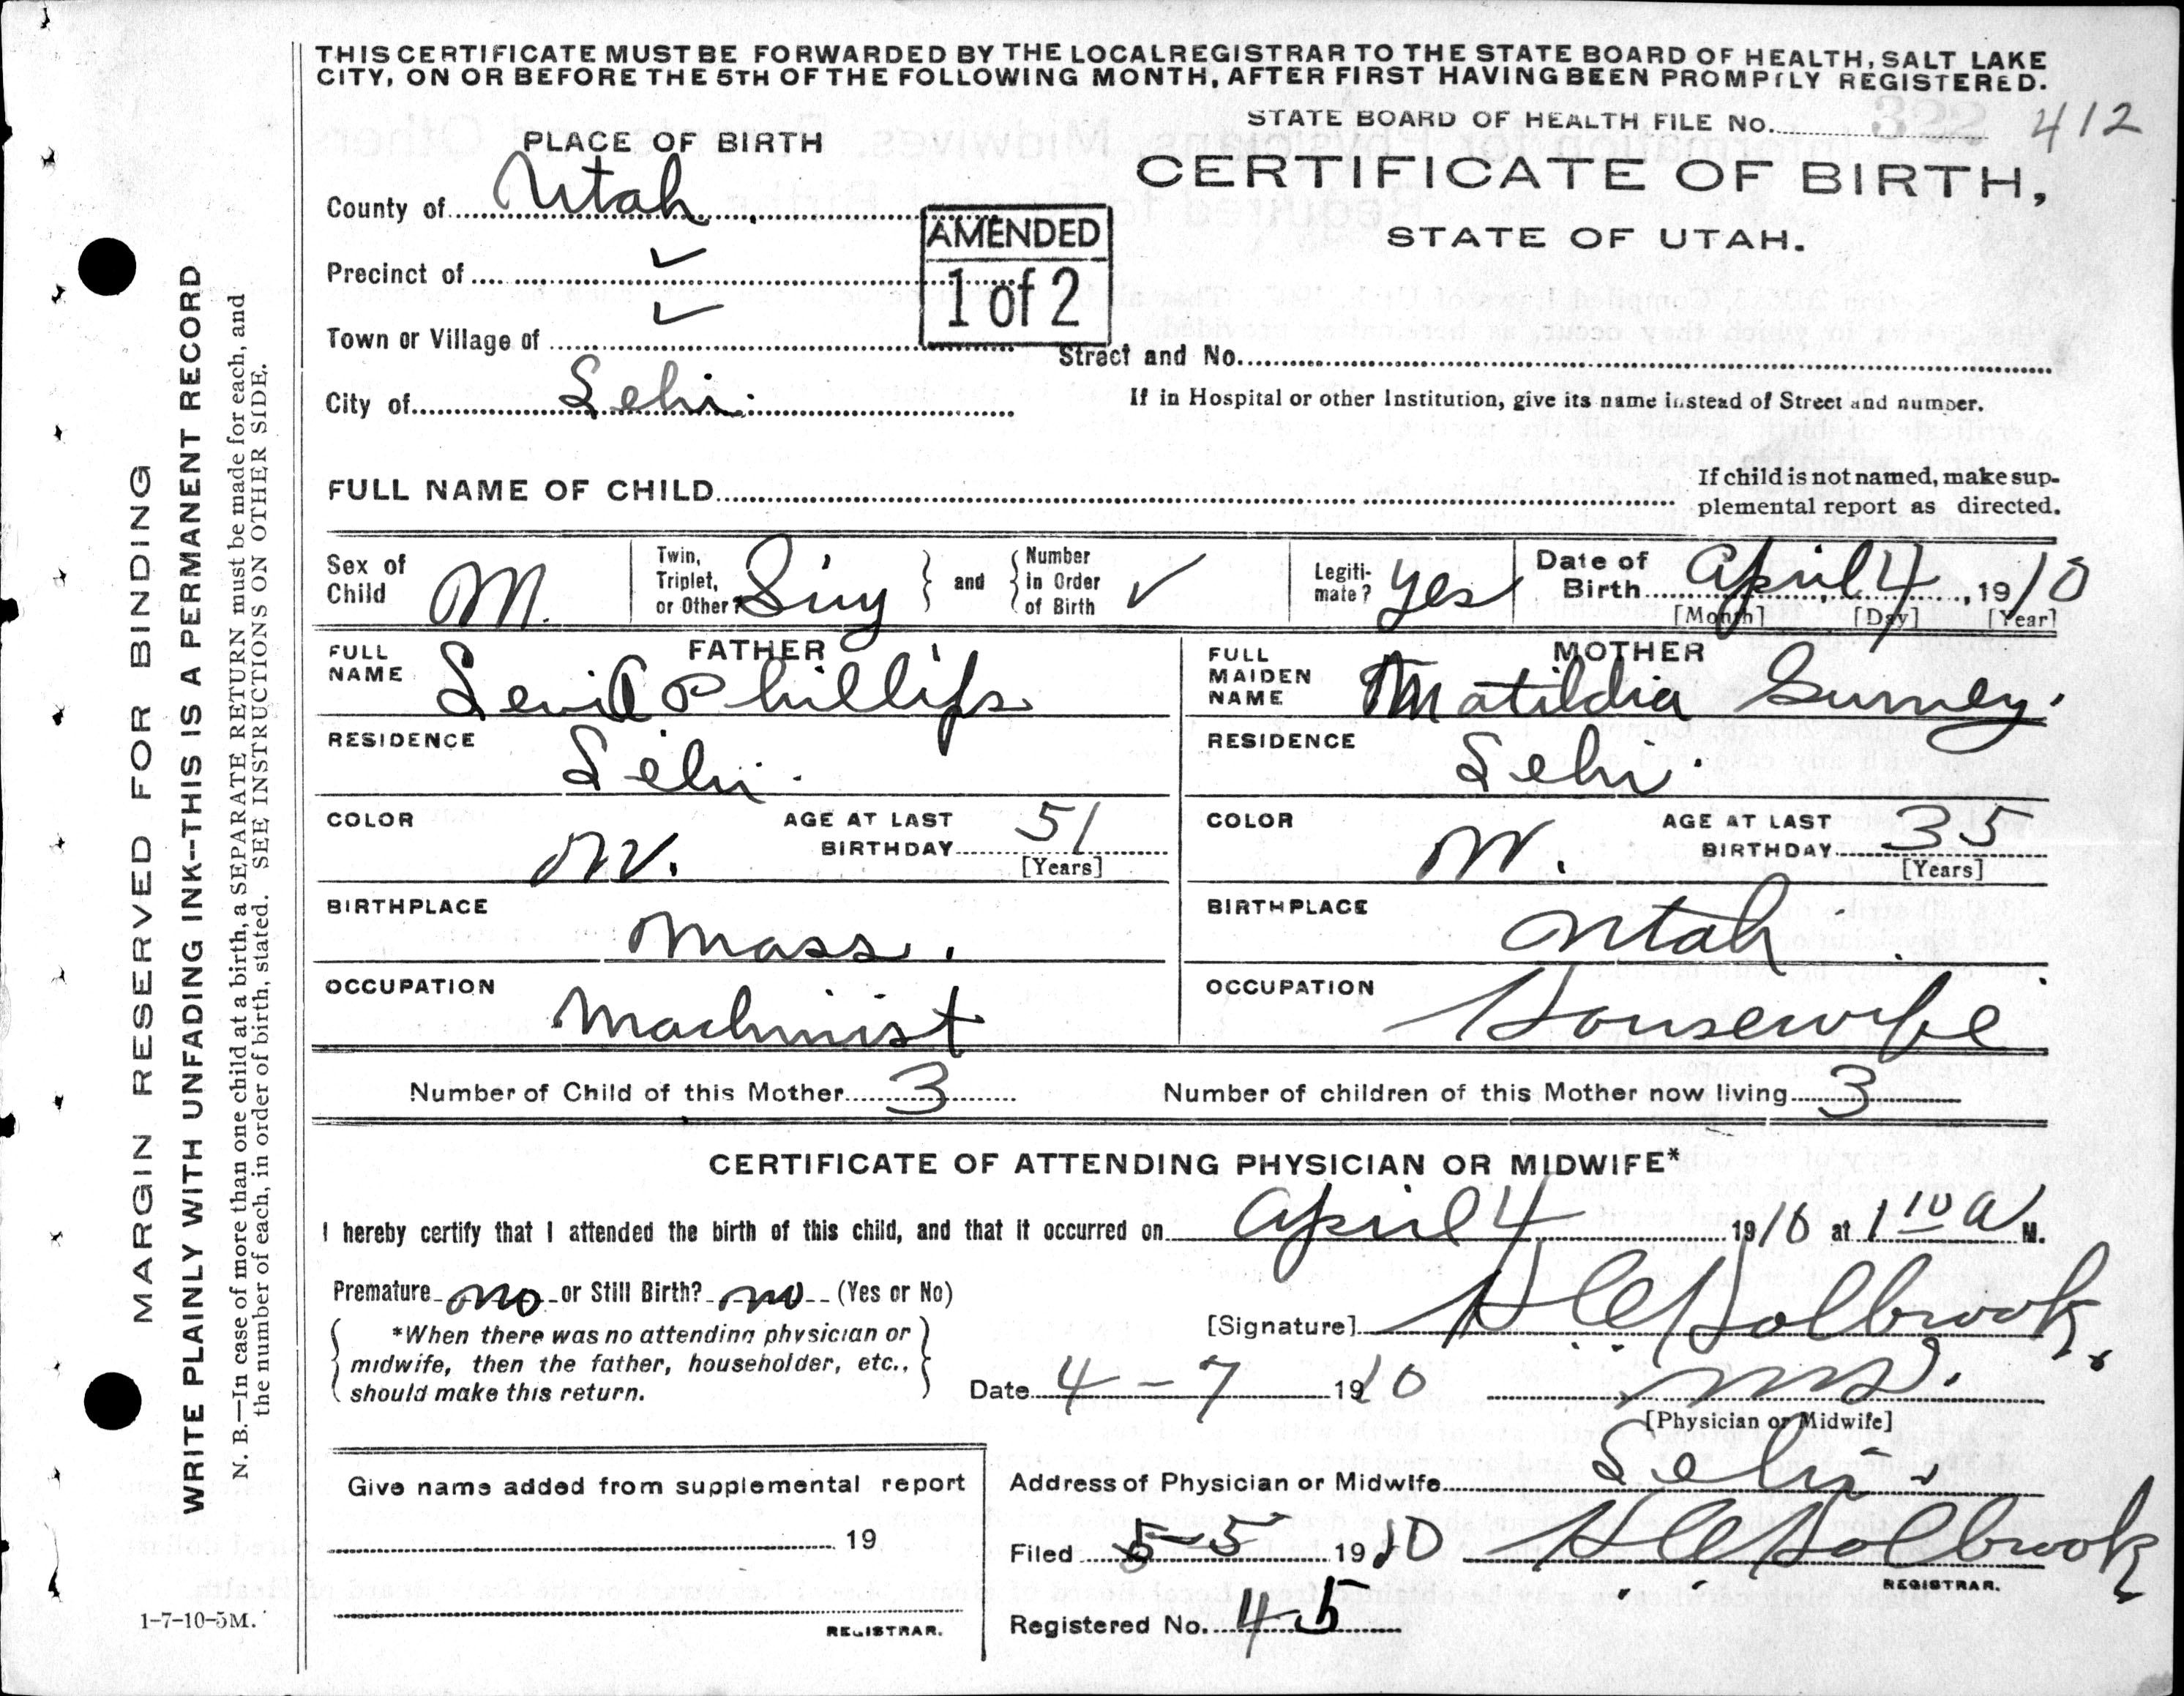 THIS CERTIFICATE MUST BE FORWARDED BY THE LOCAL REGISTRAR TO THE STATE BOARD OF HEALTH, SALT LAKE
CITY, ON OR BEFORE THE 5TH OF THE FOLLOWING MONTH, AFTER FIRST HAVING BEEN PROMPTLY REGISTERED.
STATE BOARD OF HEALTH FILE No. 412
PLACE OF BIRTH
CERTIFICATE OF BIRTH,
STATE OF UTAH.
County of Utah
AMENDED
1 of 2
Precinct of ✓
Town or Village of ✓
Street and No.
City of Lehi
If in Hospital or other Institution, give its name instead of Street and number.
FULL NAME OF CHILD
If child is not named, make sup-
plemental report as directed.
Sex of
Child M.
Twin,
Triplet,
or Other?
and
Number
in Order
of Birth ✓
Legiti-
mate? Yes
Date of
Birth April 4, 1910
[Month] [Day] [Year]
FATHER
FULL
NAME Levi A Phillips
MOTHER
FULL
MAIDEN
NAME Matildia Gurney.
RESIDENCE Lehi.
RESIDENCE Lehi.
COLOR W.
AGE AT LAST
BIRTHDAY 51
[Years]
COLOR W.
AGE AT LAST
BIRTHDAY 35
[Years]
BIRTHPLACE Mass.
BIRTHPLACE Utah
OCCUPATION Machinist
OCCUPATION Housewife
Number of Child of this Mother 3
Number of children of this Mother now living 3
CERTIFICATE OF ATTENDING PHYSICIAN OR MIDWIFE*
I hereby certify that I attended the birth of this child, and that it occurred on April 4 1910 at 1 10 A M.
Premature no or Still Birth? no (Yes or No)
*When there was no attending physician or
midwife, then the father, householder, etc.,
should make this return.
[Signature] H C Holbrook,
Date 4-7 1910
M.D.
[Physician or Midwife]
Give name added from supplemental report
19
REGISTRAR.
Address of Physician or Midwife Lehi
Filed 5-5 1910 H C Holbrook
REGISTRAR.
Registered No. 45
1-7-10-5M.
MARGIN RESERVED FOR BINDING
WRITE PLAINLY WITH UNFADING INK--THIS IS A PERMANENT RECORD
N. B.—In case of more than one child at a birth, a SEPARATE RETURN must be made for each, and
the number of each, in order of birth, stated. SEE INSTRUCTIONS ON OTHER SIDE.